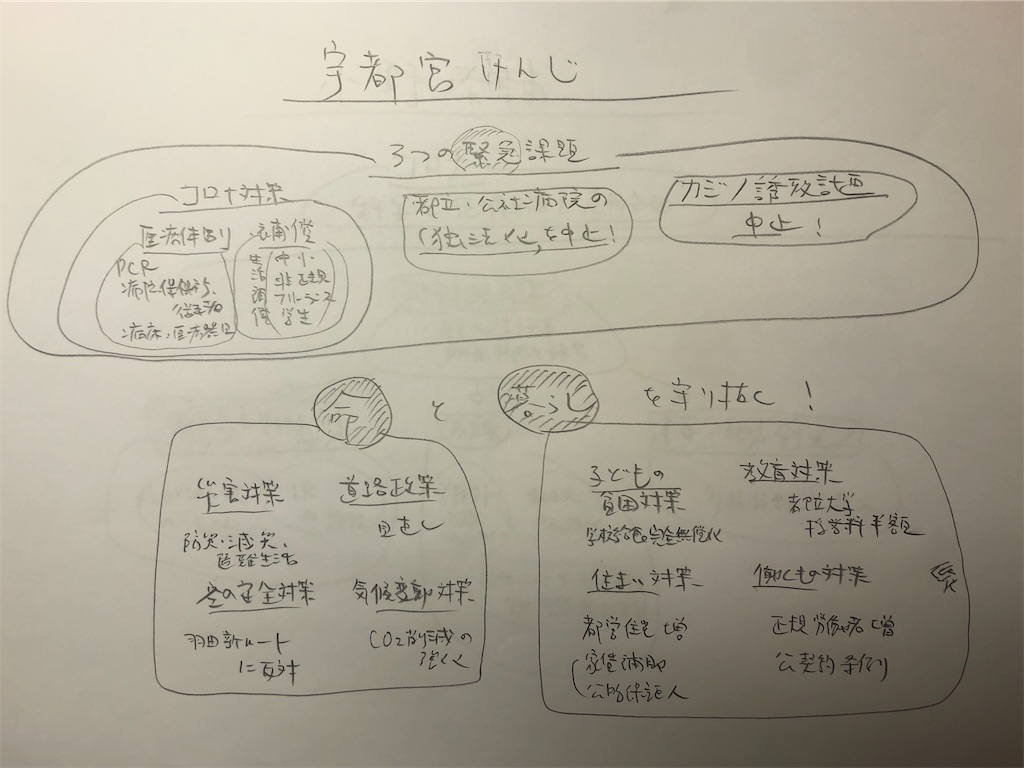 宇都宮けんじ
3つの緊急課題
コロナ対策
医療体制
PCR
病床・医療器具
補償
生活補償
中小
非正規
フリーランス
学生
都立・公社病院の
「独法化」を中止!
カジノ誘致計画
中止!
命と暮らしを守り抜く!
災害対策
防災・減災、
避難生活
道路政策
見直し
空の安全対策
羽田新ルート
に反対
気候変動対策
CO2削減の
強化
子どもの
貧困対策
学校給食の完全無償化
教育対策
都立大学
授業料半額
住まい対策
都営住宅増
家賃補助
公的保証人
働くもの対策
正規労働者増
公契約条例